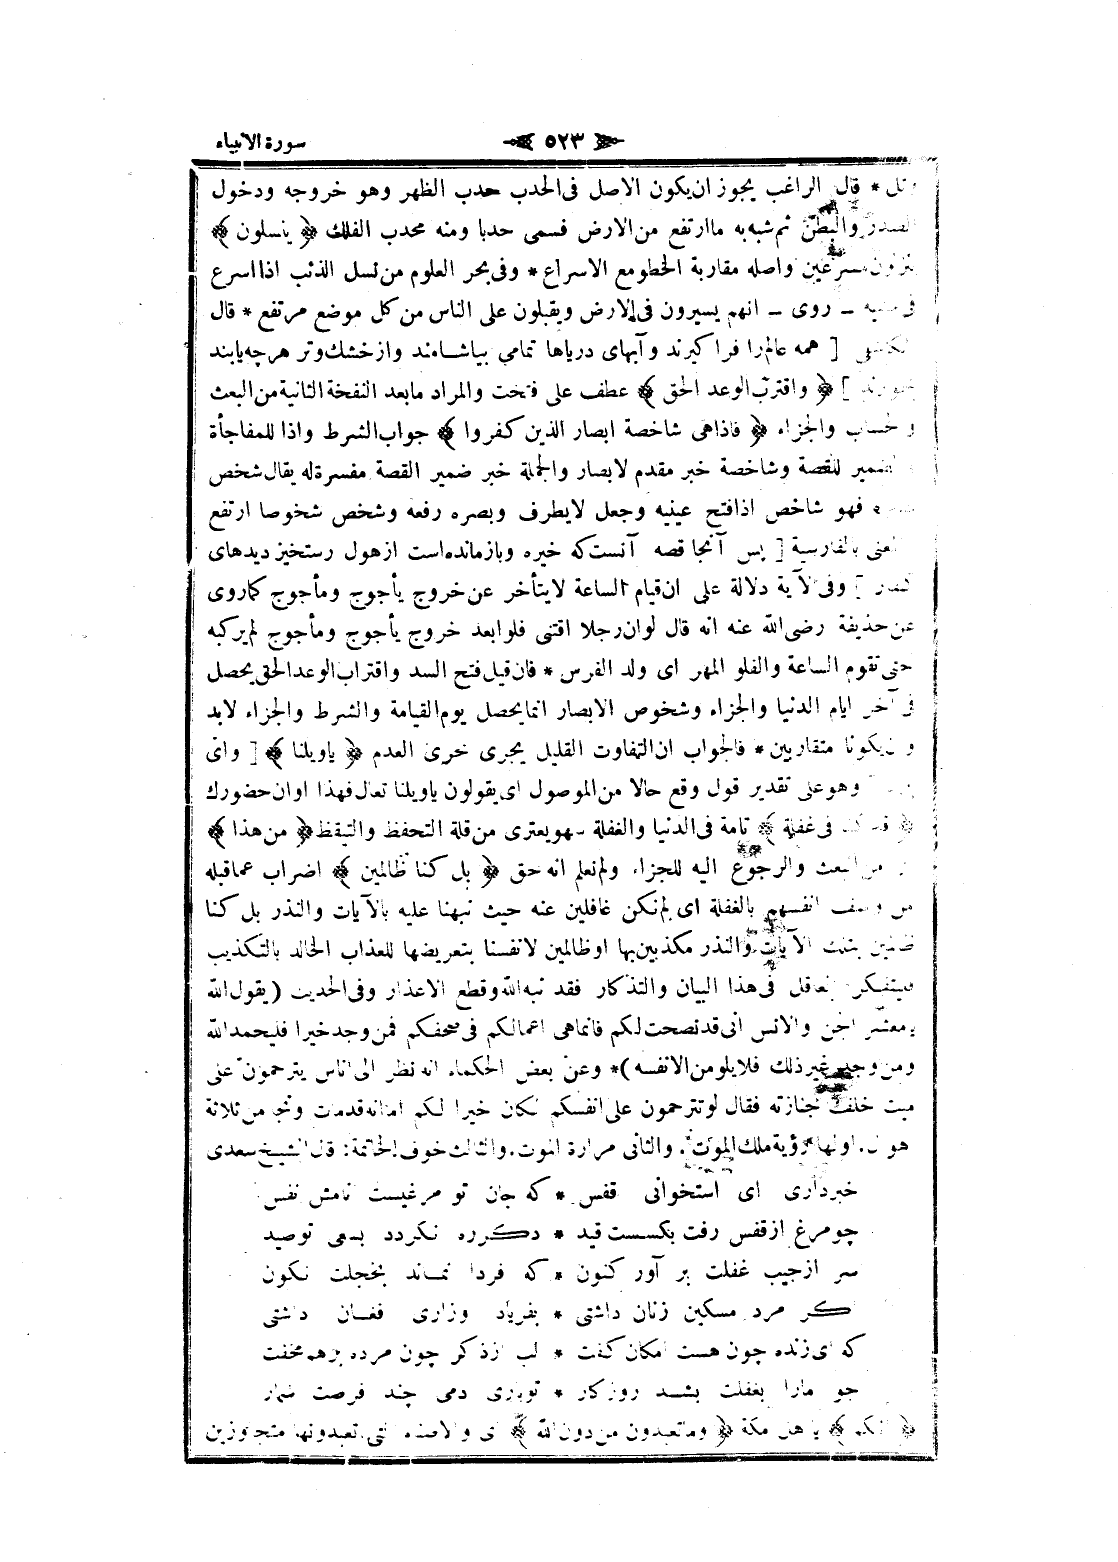 سورة الانبياء ٥٢٣
وتل * قال الراغب يجوز ان يكون الاصل فى الحدب حدب الظهر وهو خروجه ودخول
الصدر والبطن ثم شبه به ما ارتفع من الارض فسمى حدبا ومنه محدب الفلك ﴿ ينسلون ﴾
ينزلون مسرعين واصله مقاربة الخطو مع الاسراع * وفى بحر العلوم من نسل الذئب اذا اسرع
فى مشيه ـ روى ـ انهم يسيرون فى الارض ويقبلون على الناس من كل موضع مرتفع * قال
الكاشفى [ همه عالم را فرا كيرند و آبهاى درياها تمامى بياشامند و از خشك وتر هرچه يابند
بخورند ] ﴿ واقترب الوعد الحق ﴾ عطف على فتحت والمراد ما بعد النفخة الثانية من البعث
والحساب والجزاء ﴿ فاذا هى شاخصة ابصار الذين كفروا ﴾ جواب الشرط واذا للمفاجأة
والضمير للقصة وشاخصة خبر مقدم لابصار والجملة خبر ضمير القصة مفسرة له يقال شخص
فهو شاخص اذا فتح عينيه وجعل لا يطرف وبصره رفعه وشخص شخوصا ارتفع
والمعنى بالفارسية [ پس آنجا قصه آنست كه خيره وبازمانده است از هول رستخيز ديدهاى
كفار ] وفى الآية دلالة على ان قيام الساعة لا يتأخر عن خروج يأجوج ومأجوج كما روى
عن حذيفة رضى الله عنه انه قال لو ان رجلا اقتنى فلوا بعد خروج يأجوج ومأجوج لم يركبه
حتى تقوم الساعة والفلو المهر اى ولد الفرس * فان قيل فتح السد واقتراب الوعد الحق يحصل
فى آخر ايام الدنيا والجزاء وشخوص الابصار انما يحصل يوم القيامة والشرط والجزاء لا بد
وان يكونا متقاربين * فالجواب ان التفاوت القليل يجرى مجرى العدم ﴿ يا ويلنا ﴾ [ واى
وهو على تقدير قول وقع حالا من الموصول اى يقولون يا ويلنا تعال فهذا اوان حضورك
﴿ قد كنا فى غفلة ﴾ تامة فى الدنيا والغفلة سهو يعترى من قلة التحفظ والتيقظ ﴿ من هذا ﴾
من البعث والرجوع اليه للجزاء ولم نعلم انه حق ﴿ بل كنا ظالمين ﴾ اضراب عما قبله
من وصف انفسهم بالغفلة اى لم نكن غافلين عنه حيث نبهنا عليه بالآيات والنذر بل كنا
ظالمين بتلك الآيات والنذر مكذبين بها او ظالمين لانفسنا بتعريضها للعذاب الخالد بالتكذيب
فليتفكر العاقل فى هذا البيان والتذكار فقد نبه الله وقطع الاعذار وفى الحديث (يقول الله
يا معشر الجن والانس انى قد نصحت لكم فانما هى اعمالكم فى صحفكم فمن وجد خيرا فليحمد الله
ومن وجد غير ذلك فلا يلومن الا نفسه) * وعن بعض الحكماء انه نظر الى اناس يترحمون على
ميت خلف جنازته فقال لو تترحمون على انفسكم لكان خيرا لكم اما انه قد مات ونجا من ثلاثة
اهوال. اولها رؤية ملك الموت. والثانى مرارة الموت. والثالث خوف الخاتمة : قال الشيخ سعدى
خبردارى اى استخوانى قفس * كه جان تو مرغيست نامش نفس
چو مرغ از قفس رفت بكسست قيد * دكرره نكردد بسعى تو صيد
سر از جيب غفلت بر آور كنون * كه فردا نماند بخجلت نكون
كر مرد مسكين زبان داشتى * بفرياد وزارى فغان داشتى
كه اى زنده چون هست امكان كفت * لب از ذكر چون مرده برهم مخفت
چو مارا بغفلت بشد روزكار * تو بارى دمى چند فرصت شمار
﴿ انكم ﴾ يا اهل مكة ﴿ وما تعبدون من دون الله ﴾ اى والاصنام التى تعبدونها متجاوزين